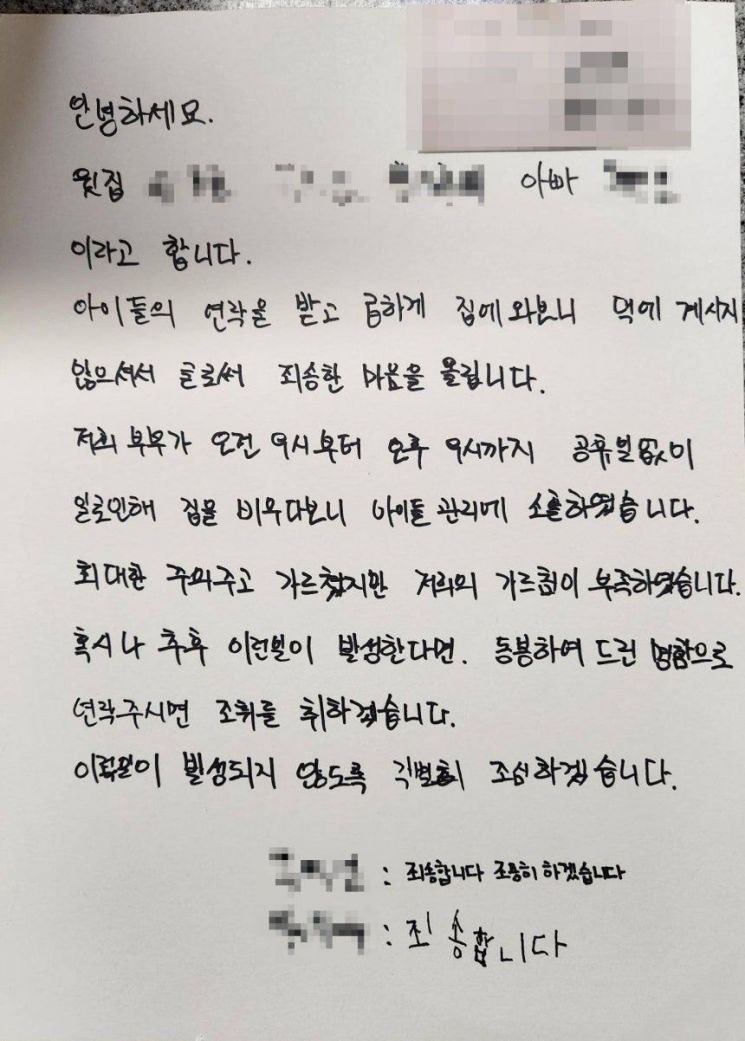 안녕하세요.
윗집 아빠
이라고 합니다.
아이들의 연락을 받고 급하게 집에 와보니 댁에 계시지
않으셔서 글로써 죄송한 마음을 올립니다.
저희 부부가 오전 9시부터 오후 9시까지 공휴일없이
일로인해 집을 비우다보니 아이들 관리에 소홀하였습니다.
최대한 주의주고 가르쳤지만 저희의 가르침이 부족하였습니다.
혹시나 추후 이런일이 발생한다면. 동봉하여 드린 명함으로
연락주시면 조취를 취하겠습니다.
이런일이 발생되지 않도록 각별히 조심하겠습니다.
: 죄송합니다 조용히 하겠습니다
: 죄송합니다